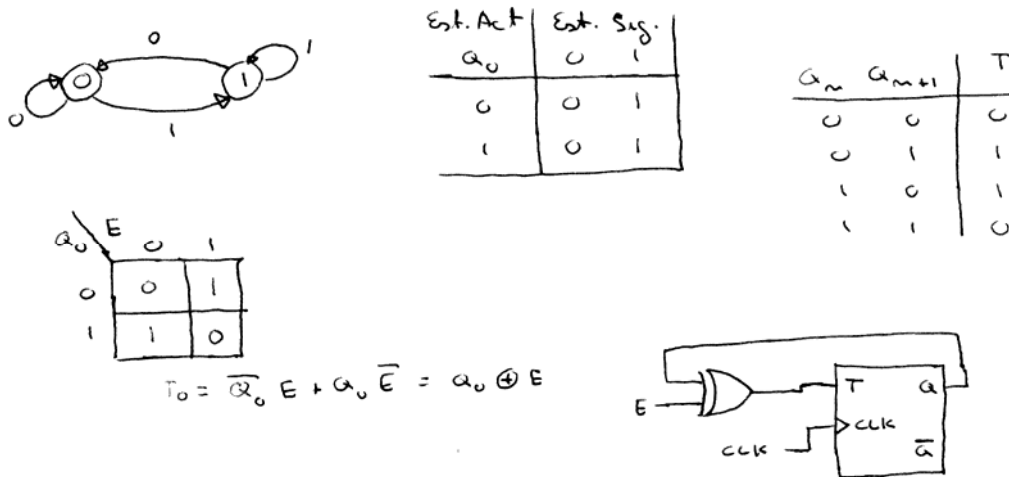 0
0 1 1
0
1
Est. Act Est. Sig.
Q₀ 0 1
0 0 1
1 0 1
Qₙ Qₙ₊₁ T
0 0 0
0 1 1
1 0 1
1 1 0
Q₀ E 0 1
0 0 1
1 1 0
T₀ = Q̅₀ E + Q₀ E̅ = Q₀ ⊕ E
E T Q
CLK CLK Q̅